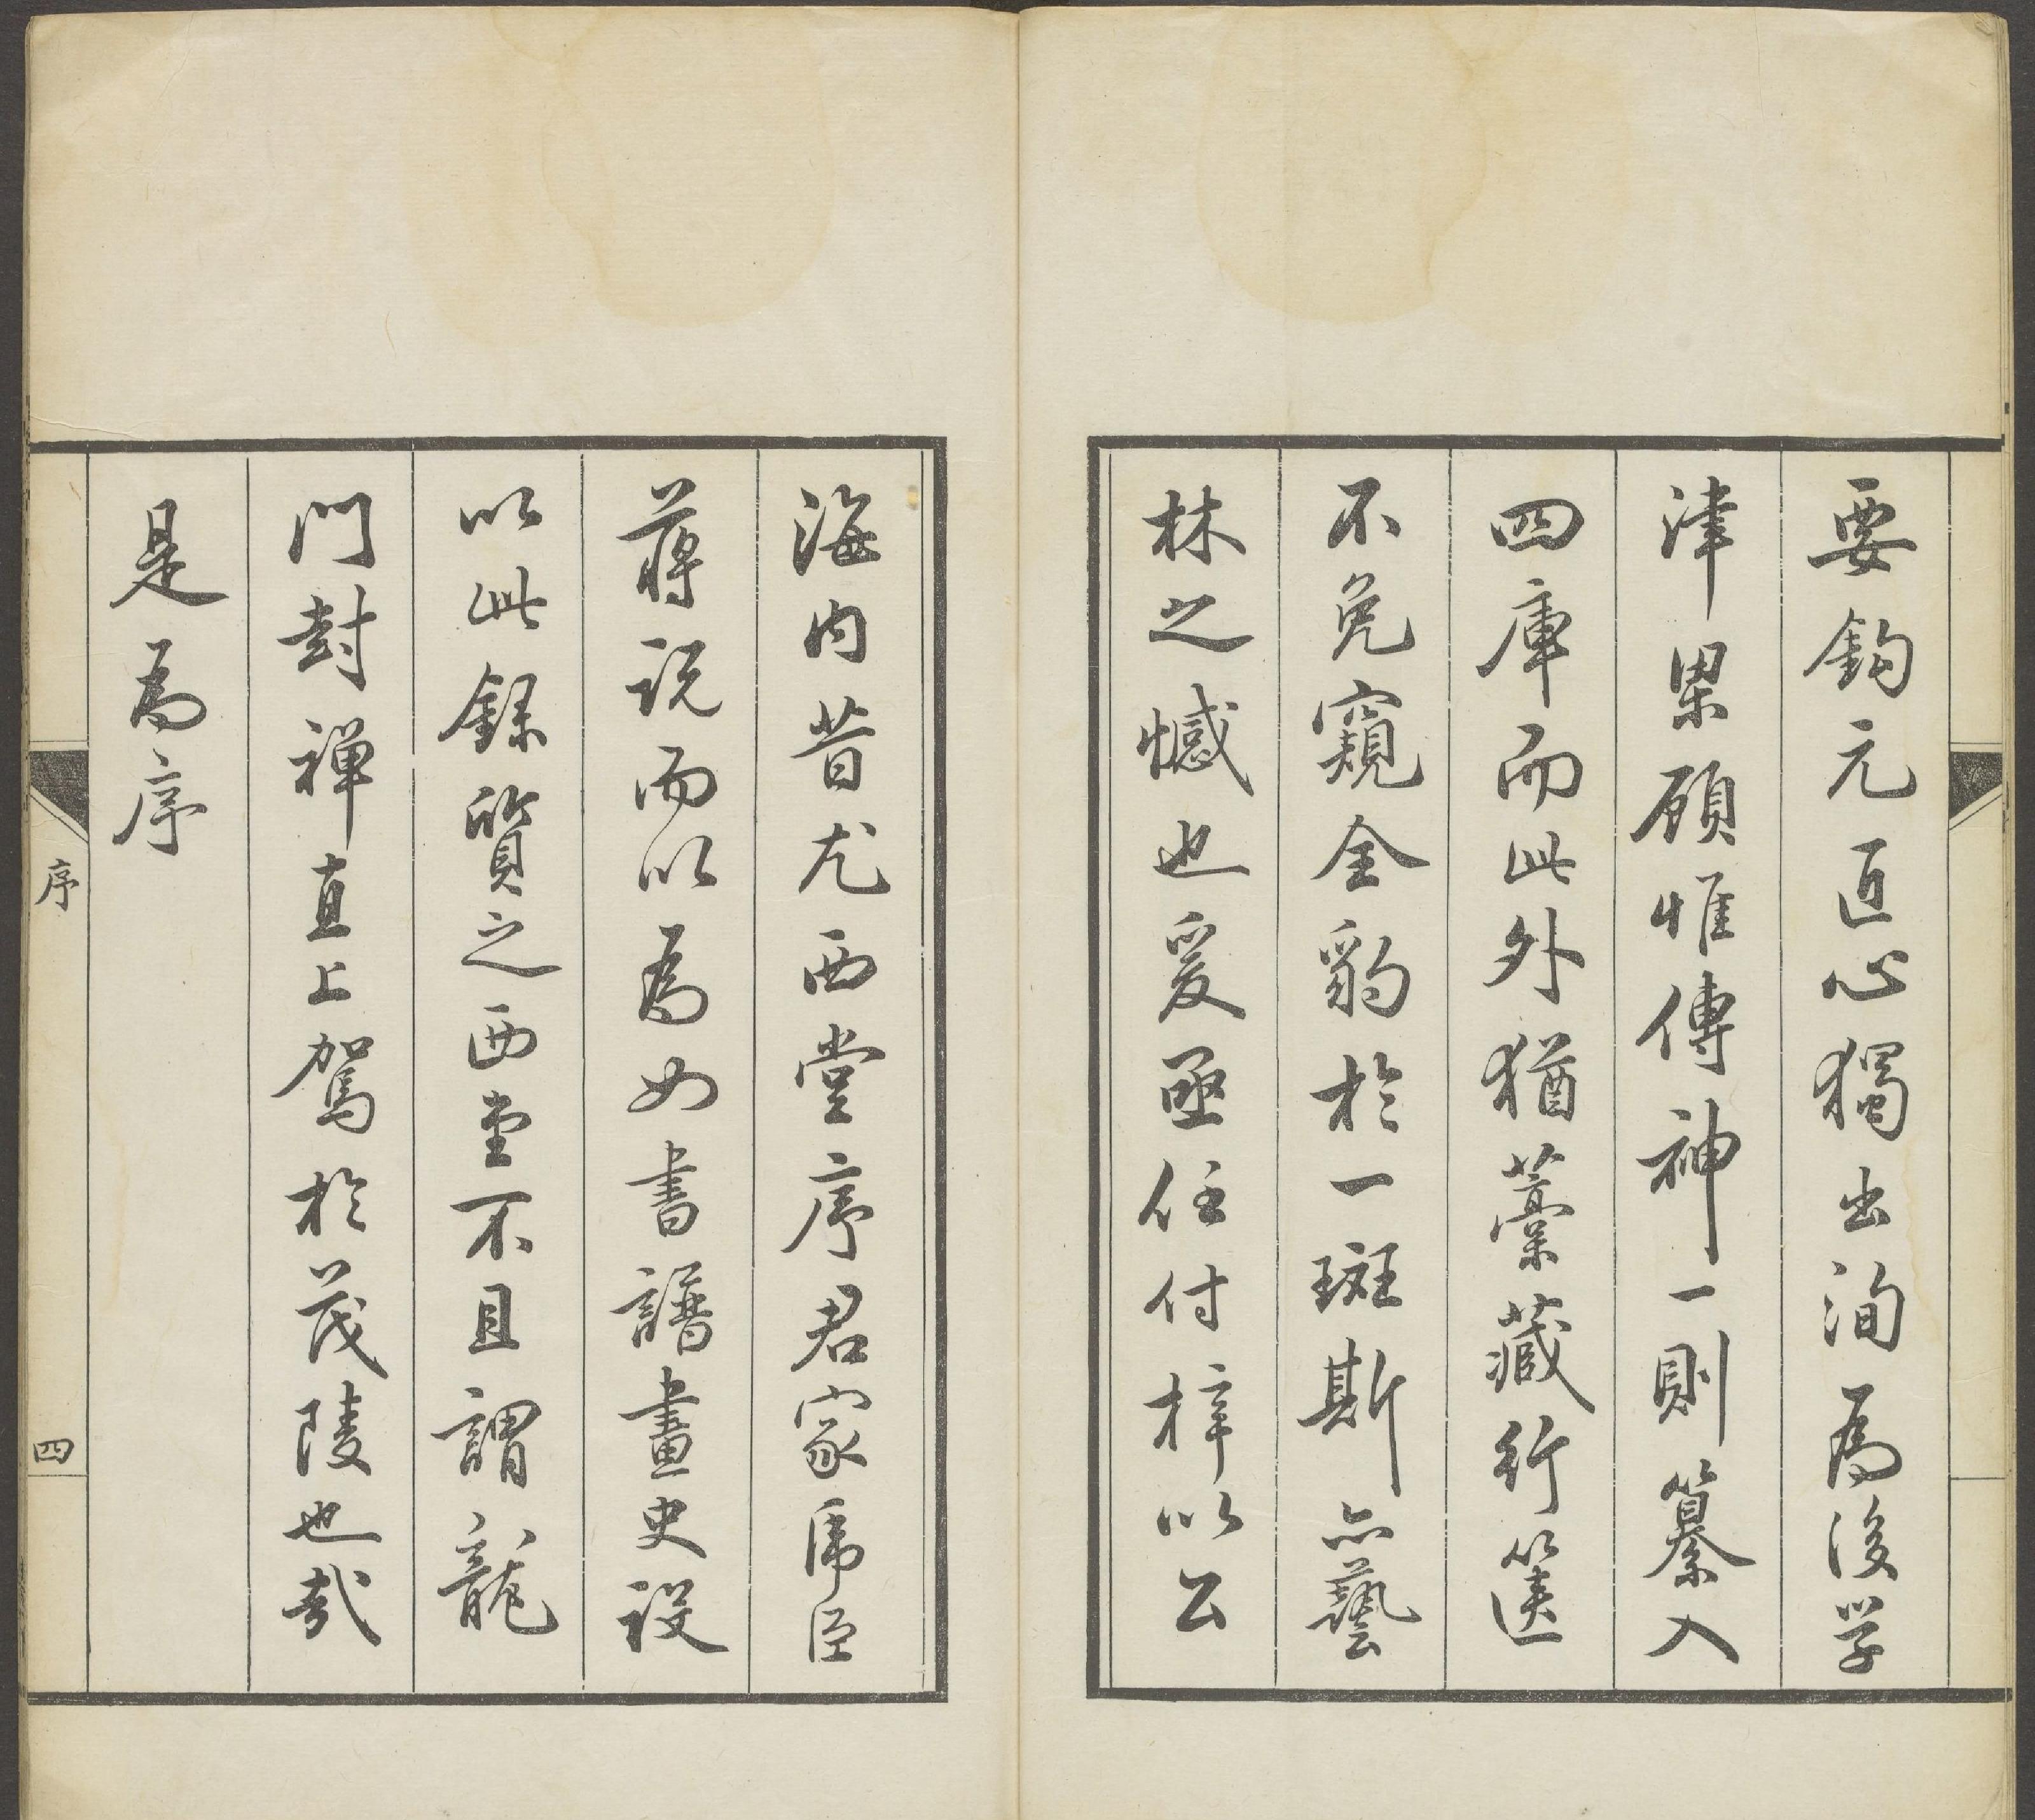 要鈎元匠心獨出洵爲後学
津梁顧惟傳神一則纂入
四庫而此外猶藁藏行篋
不免窺全豹於一斑斯亦藝
林之憾也爰亟任付梓以公
海内昔尤西堂序君家虎臣
蔣説而以爲如書譜畫史設
以此録質之西堂不且謂龍
門封禪直上駕於茂陵也哉
是爲序
序
四